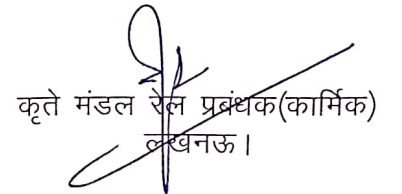 कृते मंडल रेल प्रबंधक(कार्मिक)
लखनऊ।